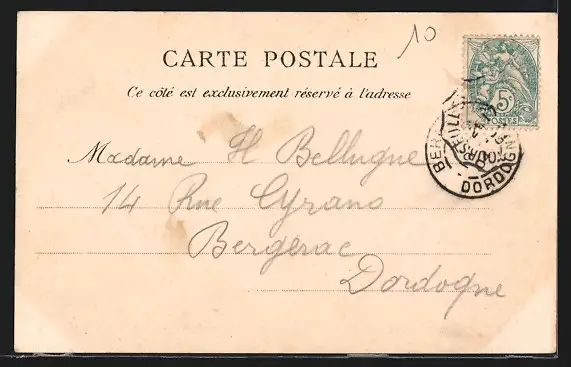 10
CARTE POSTALE
Ce côté est exclusivement réservé à l'adresse
5c
POSTES
DORDOGN
Madame H Bellugne
14 Rue Cyrano
Bergerac
Dordogne